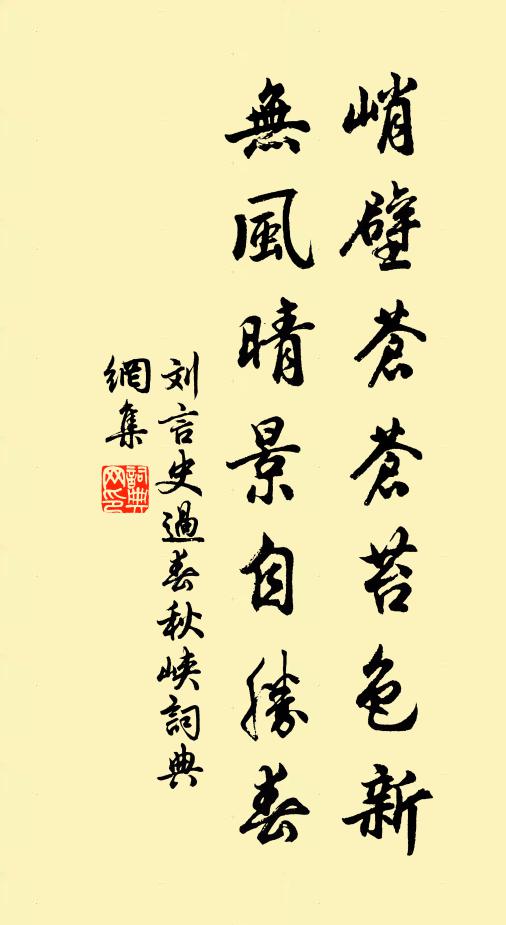 峭壁蒼蒼苔色新
無風晴景自勝春
刘言史過春秋峽詞典
網集
詞典網印